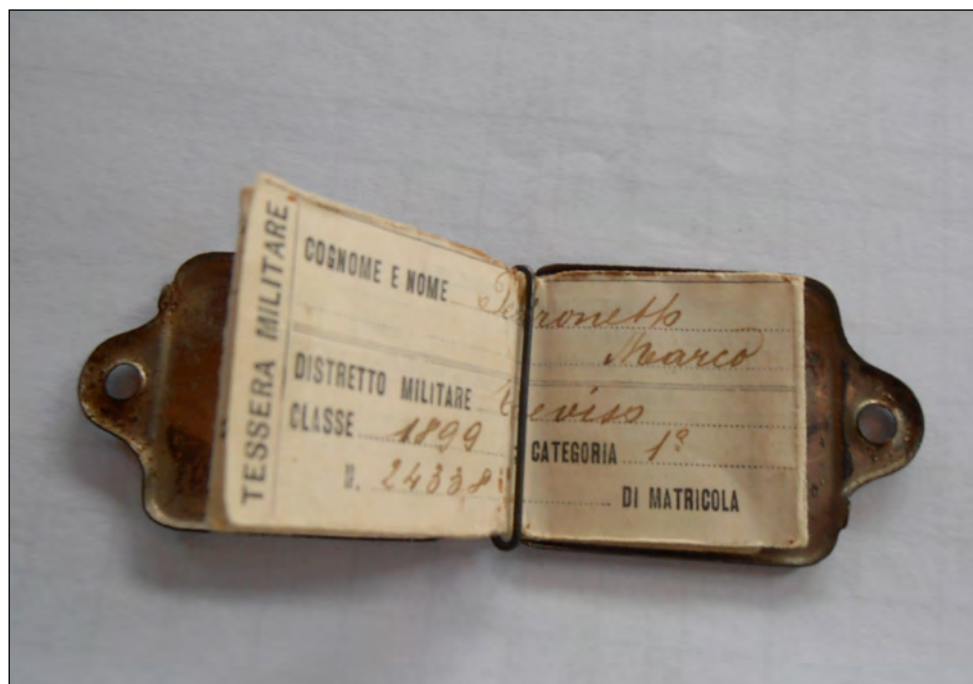 TESSERA MILITARE
COGNOME E NOME
Marco
DISTRETTO MILITARE Treviso
CLASSE 1899 CATEGORIA 1ª
N. 24338 DI MATRICOLA